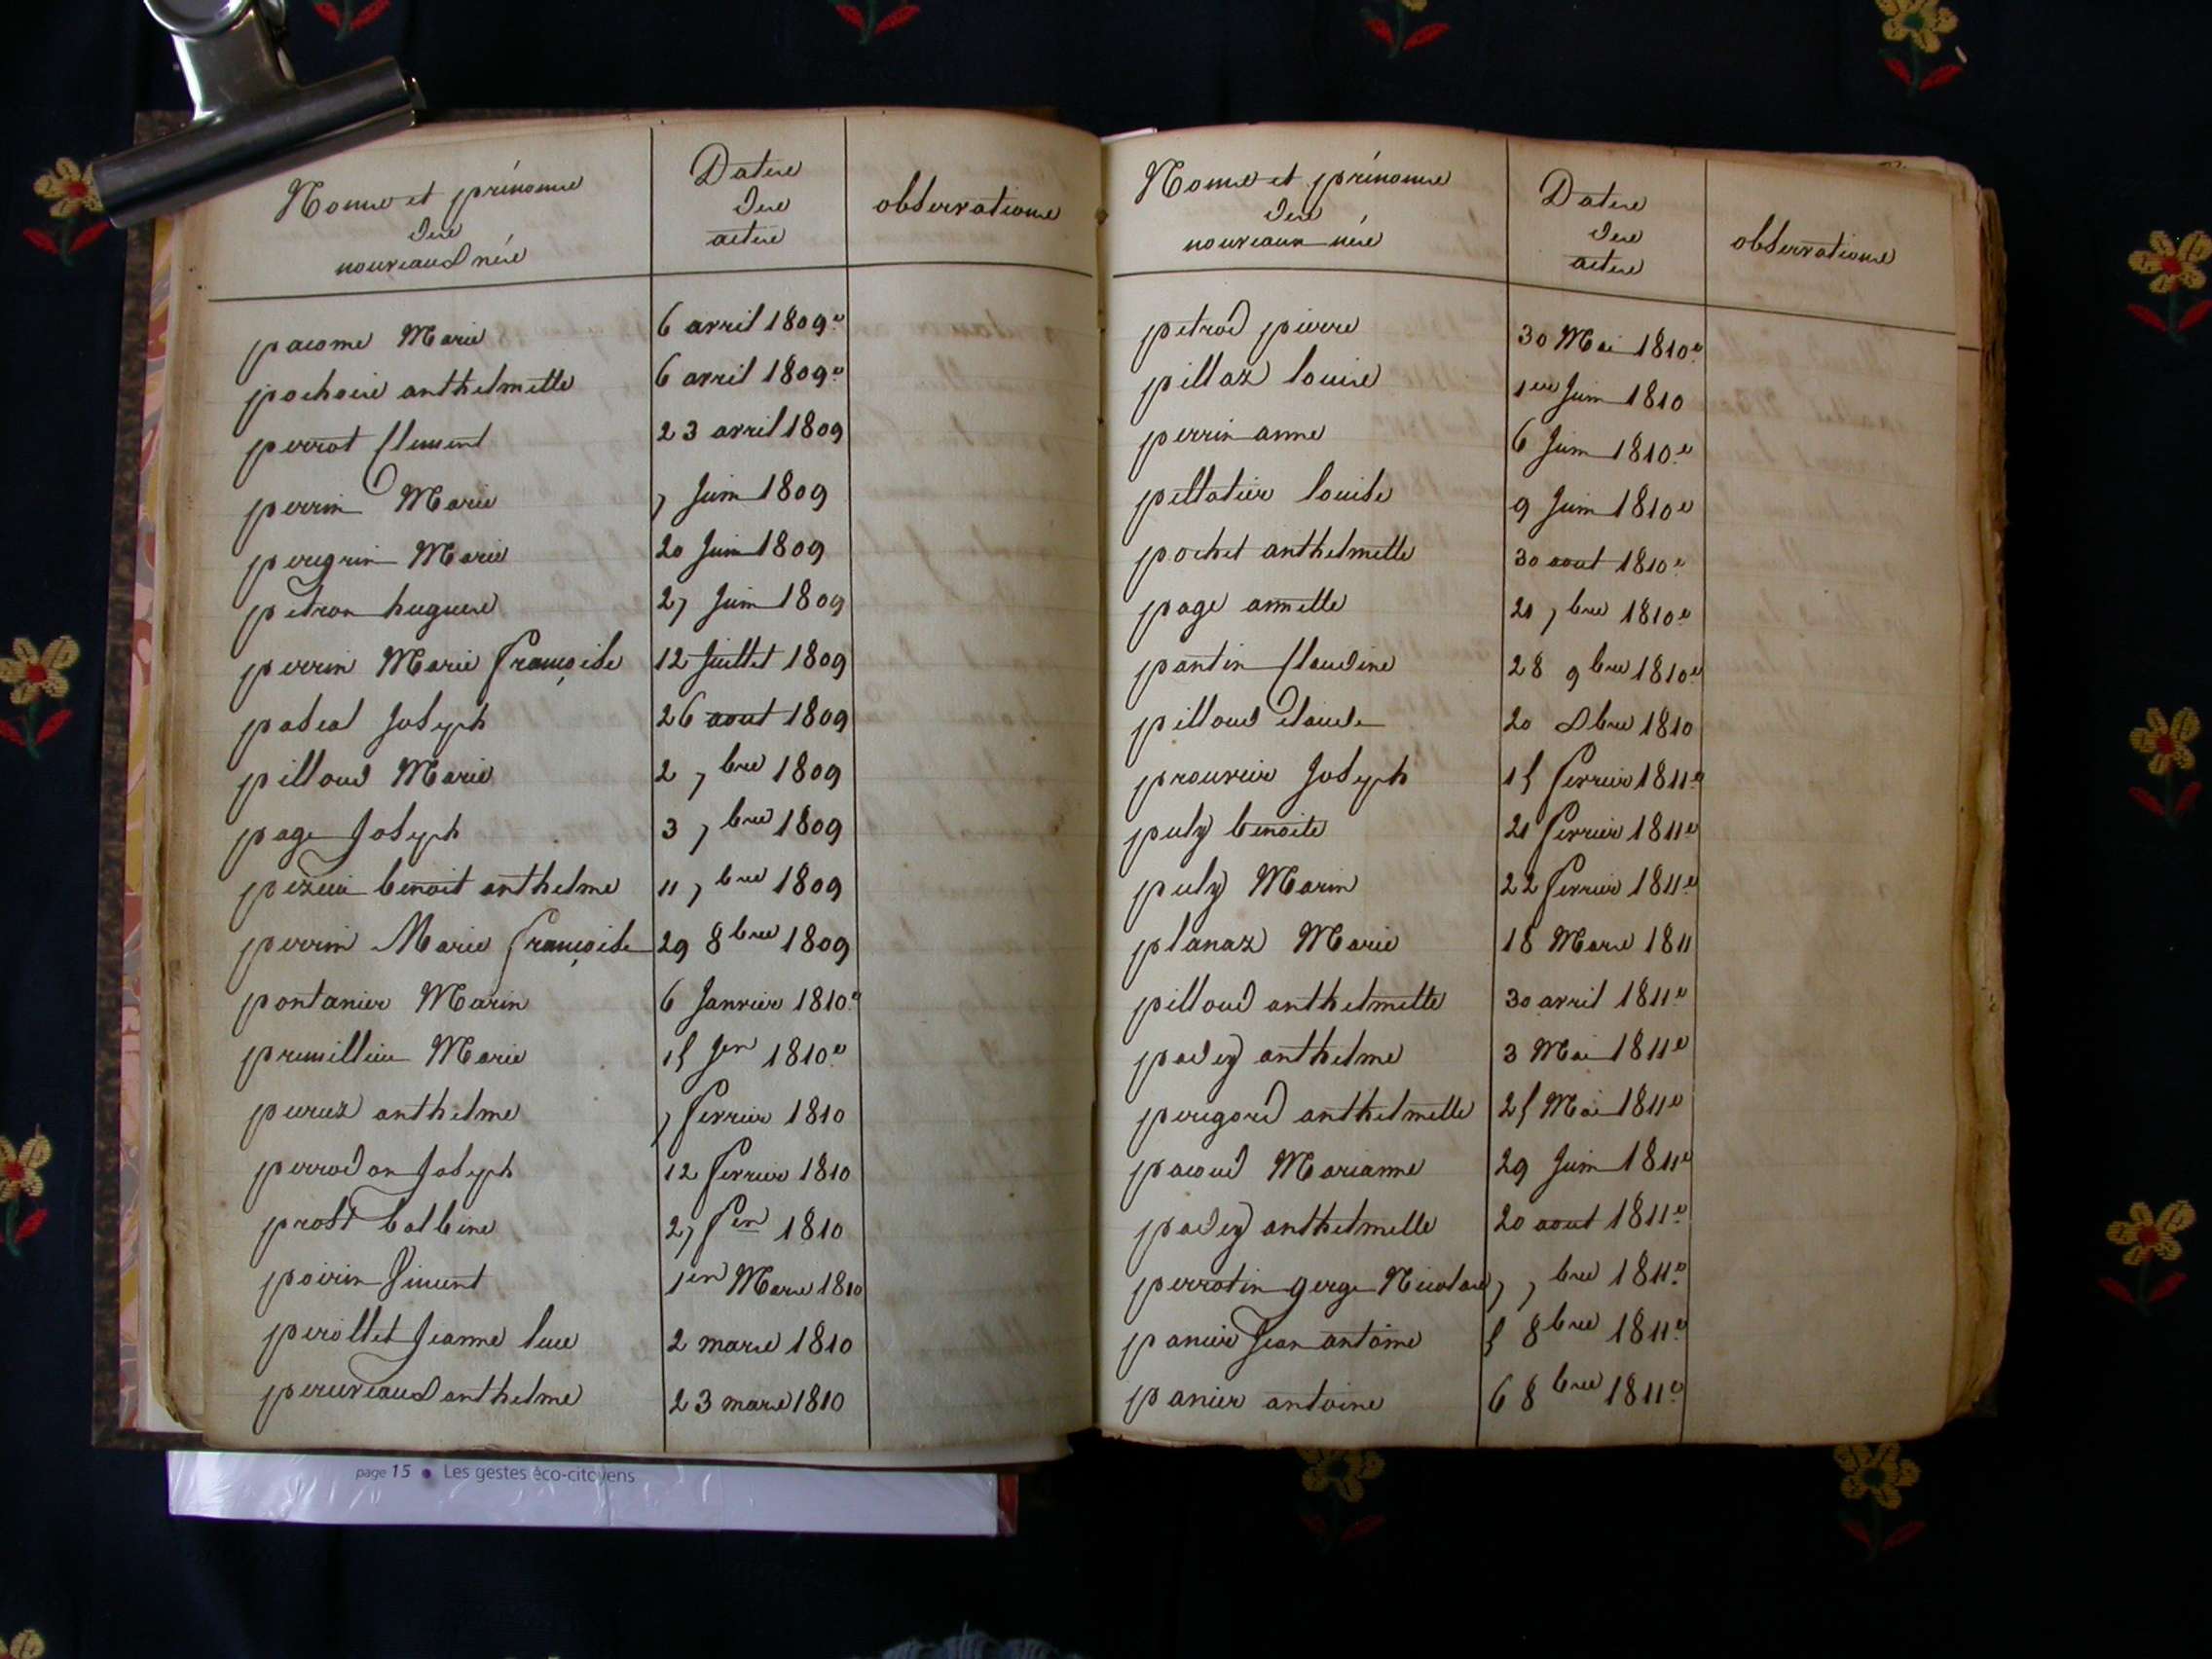 Noms et prénoms
des
nouveaux nés
Dates
des
actes
observations
pacome Marie 6 avril 1809
pochois anthelmette 6 avril 1809
perrot Clement 23 avril 1809
perrin Marie 7 Juin 1809
peregrin Marie 20 Juin 1809
petron hugues 27 Juin 1809
perrin Marie françoise 12 Juillet 1809
pascal Joseph 26 aout 1809
pilloud Marie 2 7bre 1809
page Joseph 3 7bre 1809
benoit anthelme 11 7bre 1809
perrin Marie françoise 29 8bre 1809
pontanier Marin 6 Janvier 1810
premillieu Marie 15 Jer 1810
anthelme 7 fevrier 1810
perrodon Joseph 12 fevrier 1810
prost balbine 27 fer 1810
poirin Vincent 1er Mars 1810
perollet Jeanne luce 2 mars 1810
anthelme 23 mars 1810
Noms et prénoms
des
nouveaux nés
Dates
des
actes
observations
petrod pierre 30 Mai 1810
pillaz louise 1er Juin 1810
perrin anne 6 Juin 1810
pellatier louise 9 Juin 1810
pochet anthelmette 30 aout 1810
page annette 7bre 1810
pantin Claudine 28 9bre 1810
pilloud claude 20 Dbre 1810
Joseph 15 fevrier 1811
puly benoite 21 fevrier 1811
puly Marin 22 fevrier 1811
planaz Marie 18 Mars 1811
pilloud anthelmette 30 avril 1811
padey anthelme 3 Mai 1811
perigord anthelmette 25 Mai 1811
pacoud Marianne 29 Juin 1811
padey anthelmette 20 aout 1811
perrotin gerge Nicolas 7 7bre 1811
panier Jean antoine 5 8bre 1811
panier antoine 6 8bre 1811
page 15 • Les gestes éco-citoyens